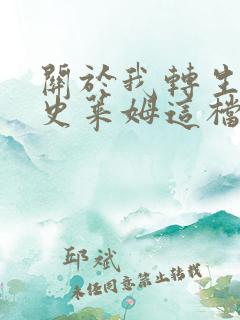 關於我轉生
史萊姆這檔
邱斌
未經同意禁止轉載